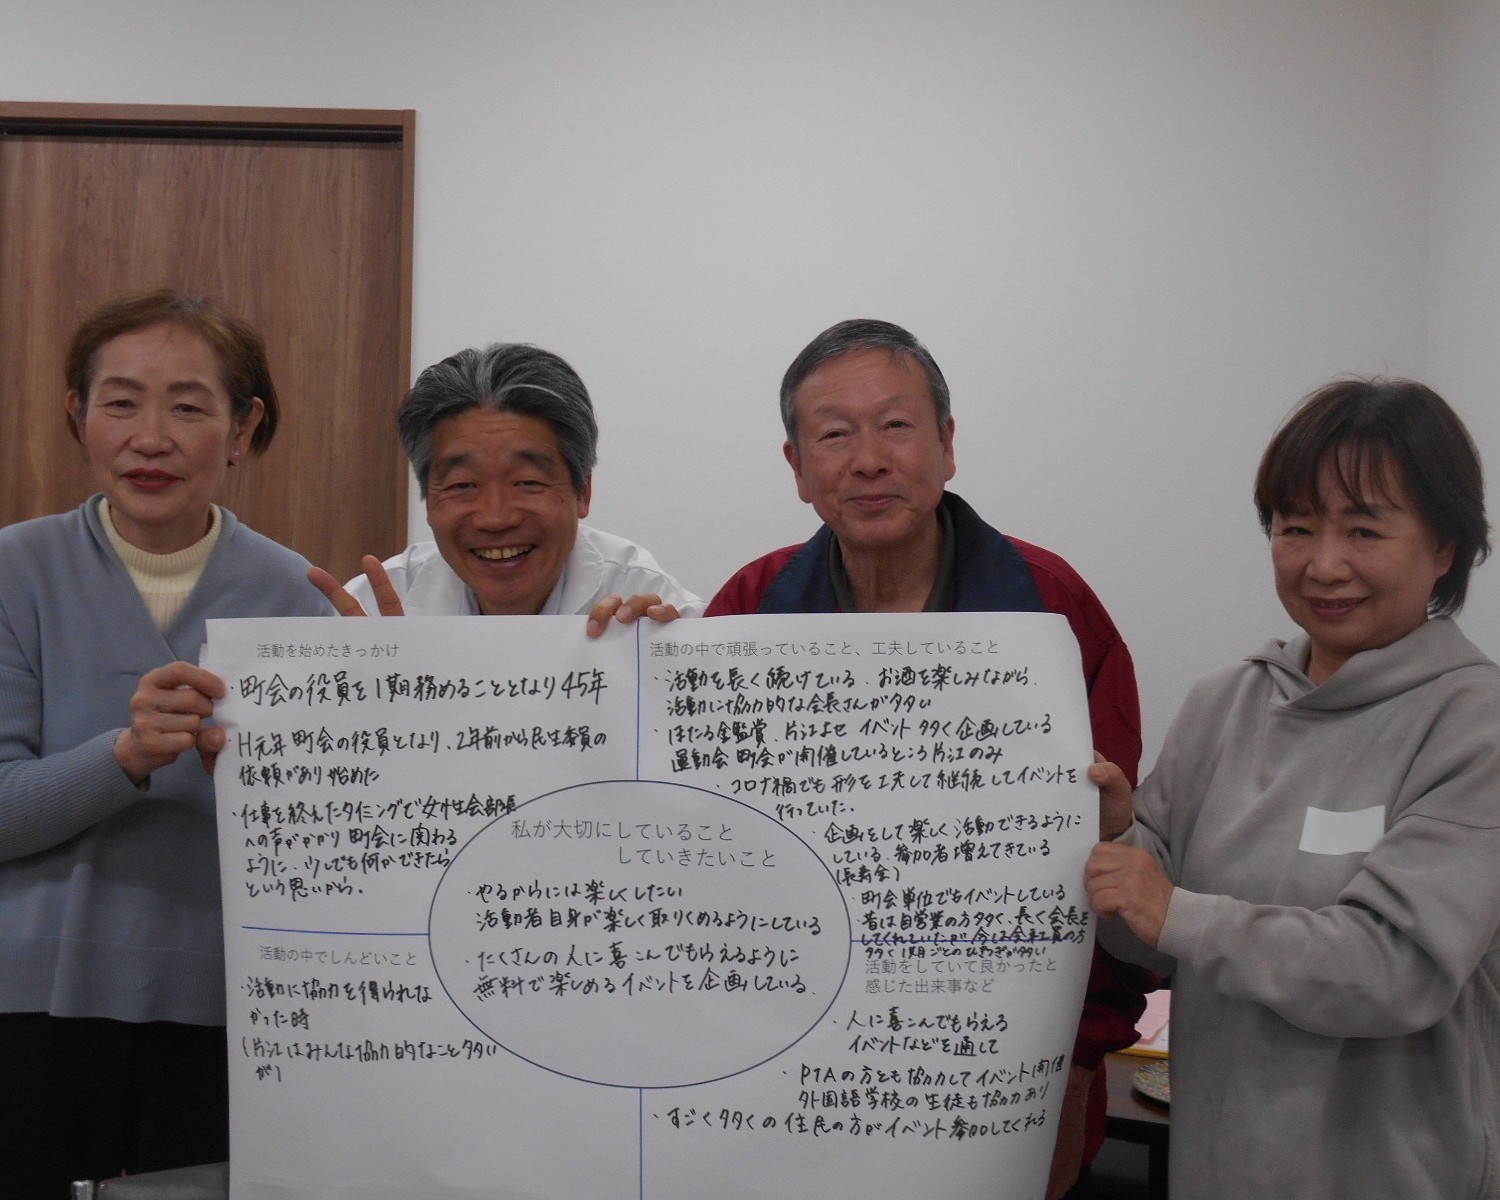 活動を始めたきっかけ
・町会の役員を1期務めることとなり45年
・H元年町会の役員となり、2年前から民生委員の
依頼があり始めた
・仕事を終えたタイミングで女性会部長
への声がかかり町会に関わる
ように、少しでも何かできたら
という思いから。
活動の中で頑張っていること、工夫していること
・活動を長く続けている。お酒を楽しみながら、
活動に協力的な会長さんが多い
・ほたる金鑑賞、片江よせイベント多く企画している
運動会 町会が開催しているところ片江のみ
・コロナ禍でも形を工夫して継続してイベントを
行っていた。
・企画をして楽しく活動できるように
している。参加者増えてきている
(長寿会)
・町会単位でもイベントしている
・昔は自営業の方多く、長く会長を
してくれていたが今は会社員の方
多く1期ごとのひきつぎが多い
私が大切にしていること
していきたいこと
・やるからには楽しくしたい
活動者自身が楽しく取りくめるようにしている
・たくさんの人に喜こんでもらえるように
無料で楽しめるイベントを企画している。
活動の中でしんどいこと
・活動に協力を得られな
かった時
(片江はみんな協力的なこと多い
が)
活動をしていて良かったと
感じた出来事など
・人に喜こんでもらえる
イベントなどを通して
・PTAの方とも協力してイベント開催
外国語学校の生徒も協力あり
・すごく多くの住民の方がイベント参加してくれる